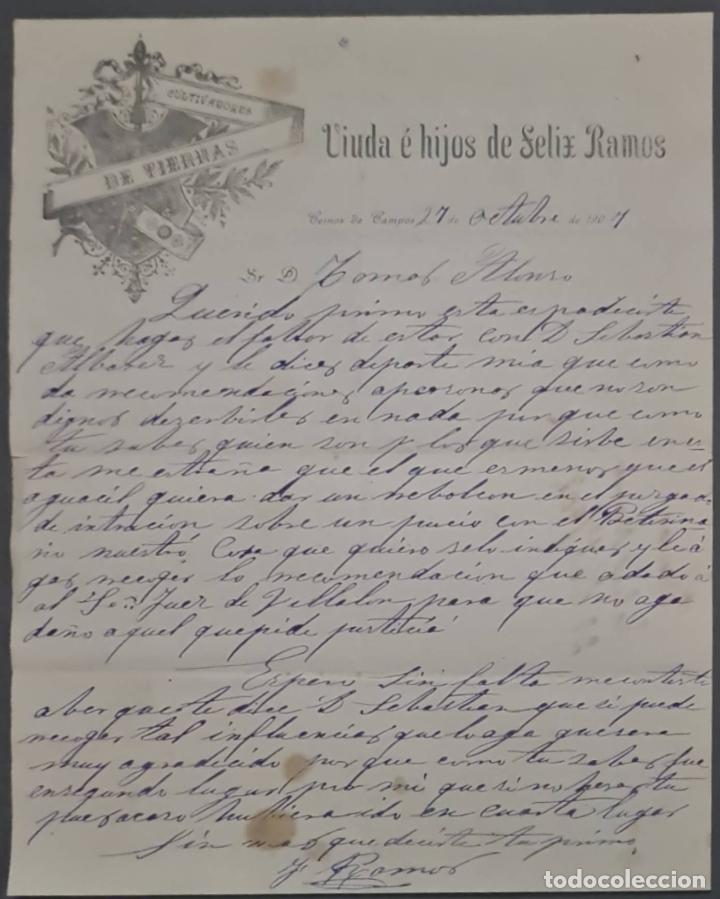 CULTIVADORES
DE TIERRAS
Viuda é hijos de Felix Ramos
Ceinos de Campos 27 de Octubre de 1907
Sr D. Tomas Alonso
Querido primo esta es para decirte
que hagas el fabor de estar con D Sebastian
Albarez y le dices de parte mia que como
da recomendaciones apersonas que no son
dignos dezerbirles en nada por que como
tu sabes quien son y los que sirbe en es
ta me estraña que el que es menos que el
aguacil quiera dar un rebolcon en el juzgado
de intración sobre un juicio con el Beterina
rio nuestro Cosa que quiero selo indiques y le á
gas recoger la recomendación que adado á
al Sor Juez de Villalon para que no aga
daño aquel que pide justicia
Espero sin falta me contestes
aber que te dice D Sebastian que si puede
recoger tal influencias que lo aga que sera
muy agradicido por que como tu sabes fue
en segundo lugar por mi que si no
pues acaso hubiera ido en cuarto lugar
Sin mas que decirte tu primo
F Ramos
todocoleccion